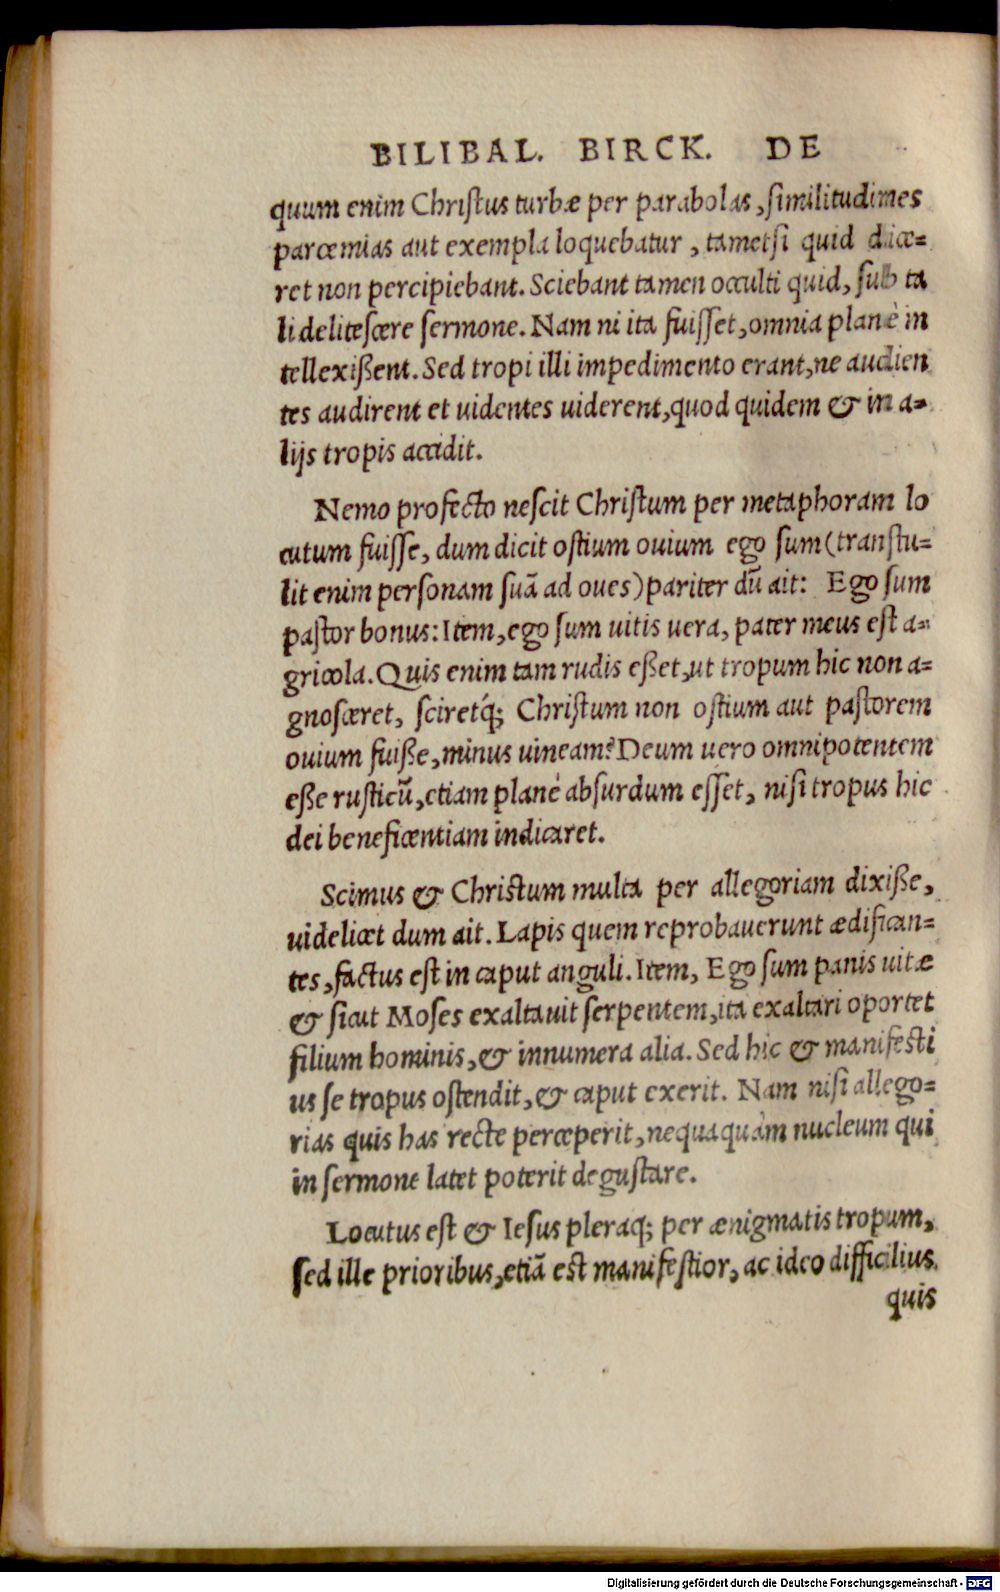 BILIBAL. BIRCK. DE
quum enim Christus turbæ per parabolas, similitudines
parœmias aut exempla loquebatur, tametsi quid dice=
ret non percipiebant. Sciebant tamen occulti quid, sub ta
li delitescere sermone. Nam ni ita fuisset, omnia planè in
tellexißent. Sed tropi illi impedimento erant, ne audien
tes audirent et uidentes uiderent, quod quidem & in a=
lijs tropis accidit.
Nemo profecto nescit Christum per metaphoram lo
cutum fuisse, dum dicit ostium ouium ego sum (transtu=
lit enim personam suã ad oues) pariter dũ ait: Ego sum
pastor bonus: Item, ego sum uitis uera, pater meus est a=
gricola. Quis enim tam rudis eßet, ut tropum hic non a=
gnosceret, sciretq́; Christum non ostium aut pastorem
ouium fuiße, minus uineam? Deum uero omnipotentem
eße rusticũ, etiam planè absurdum esset, nisi tropus hic
dei beneficentiam indicaret.
Scimus & Christum multa per allegoriam dixiße,
uidelicet dum ait. Lapis quem reprobauerunt ædifican=
tes, factus est in caput anguli. Item, Ego sum panis uitæ
& sicut Moses exaltauit serpentem, ita exaltari oportet
filium hominis, & innumera alia. Sed hic & manifesti
us se tropus ostendit, & caput exerit. Nam nisi allego=
rias quis has recte perceperit, nequaquàm nucleum qui
in sermone latet poterit degustare.
Locutus est & Iesus pleraq; per ænigmatis tropum,
sed ille prioribus, etiã est manifestior, ac ideo difficilius
quis
Digitalisierung gefördert durch die Deutsche Forschungsgemeinschaft - DFG